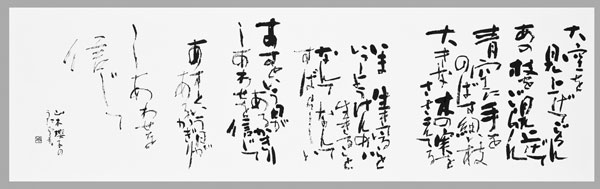 大空を
見上げてごらん
あの枝を見上げてごらん
青空に手を
のばす細い枝
大きな木の実を
ささえてる
いま生きていること
いっしょうけんめい
生きること
なんてなんて
すばらしい
あすという日が
あるかぎり
しあわせを信じて
あすという日が
あるかぎり
しあわせを
信じて
山本瓔子の